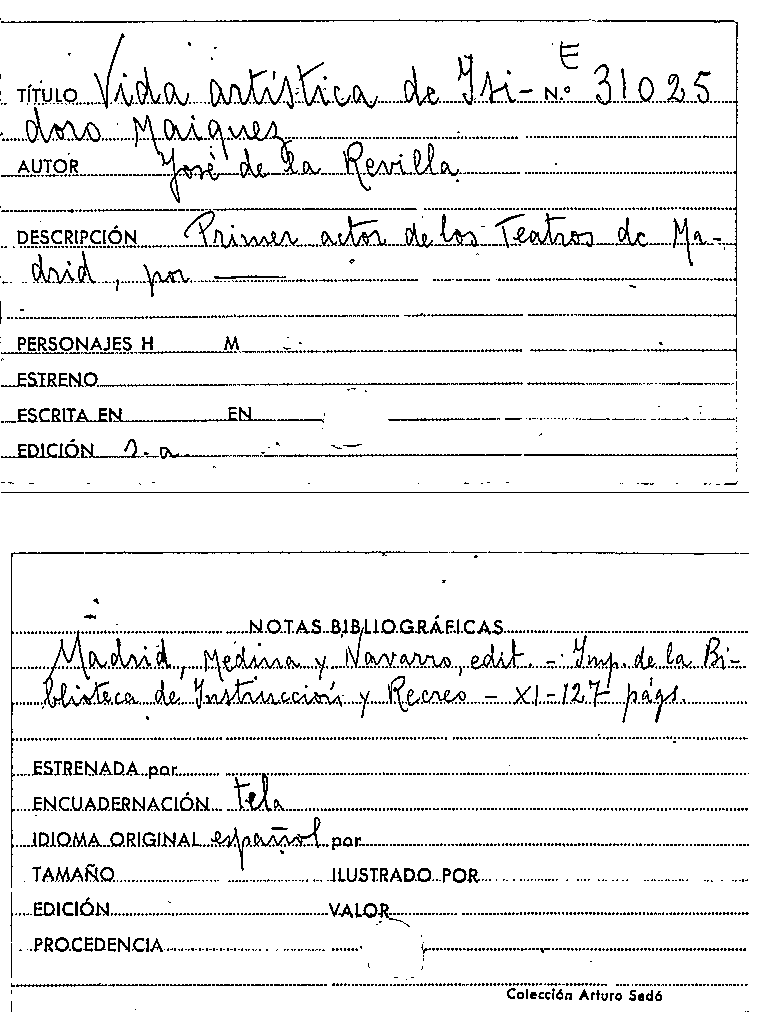 E
TÍTULO Vida artística de Isi- N.º 31025
doro Maiquez
AUTOR José de la Revilla
DESCRIPCIÓN Primer actor de los Teatros de Ma-
drid, por ———
PERSONAJES H M
ESTRENO
ESCRITA EN EN
EDICIÓN s.a
NOTAS BIBLIOGRÁFICAS
Madrid, Medina y Navarro, edit. - Imp. de la Bi-
blioteca de Instrucción y Recreo - XI-127 págs.
ESTRENADA por
ENCUADERNACIÓN tela
IDIOMA ORIGINAL español por
TAMAÑO ILUSTRADO POR
EDICIÓN VALOR
PROCEDENCIA
Colección Arturo Sedó